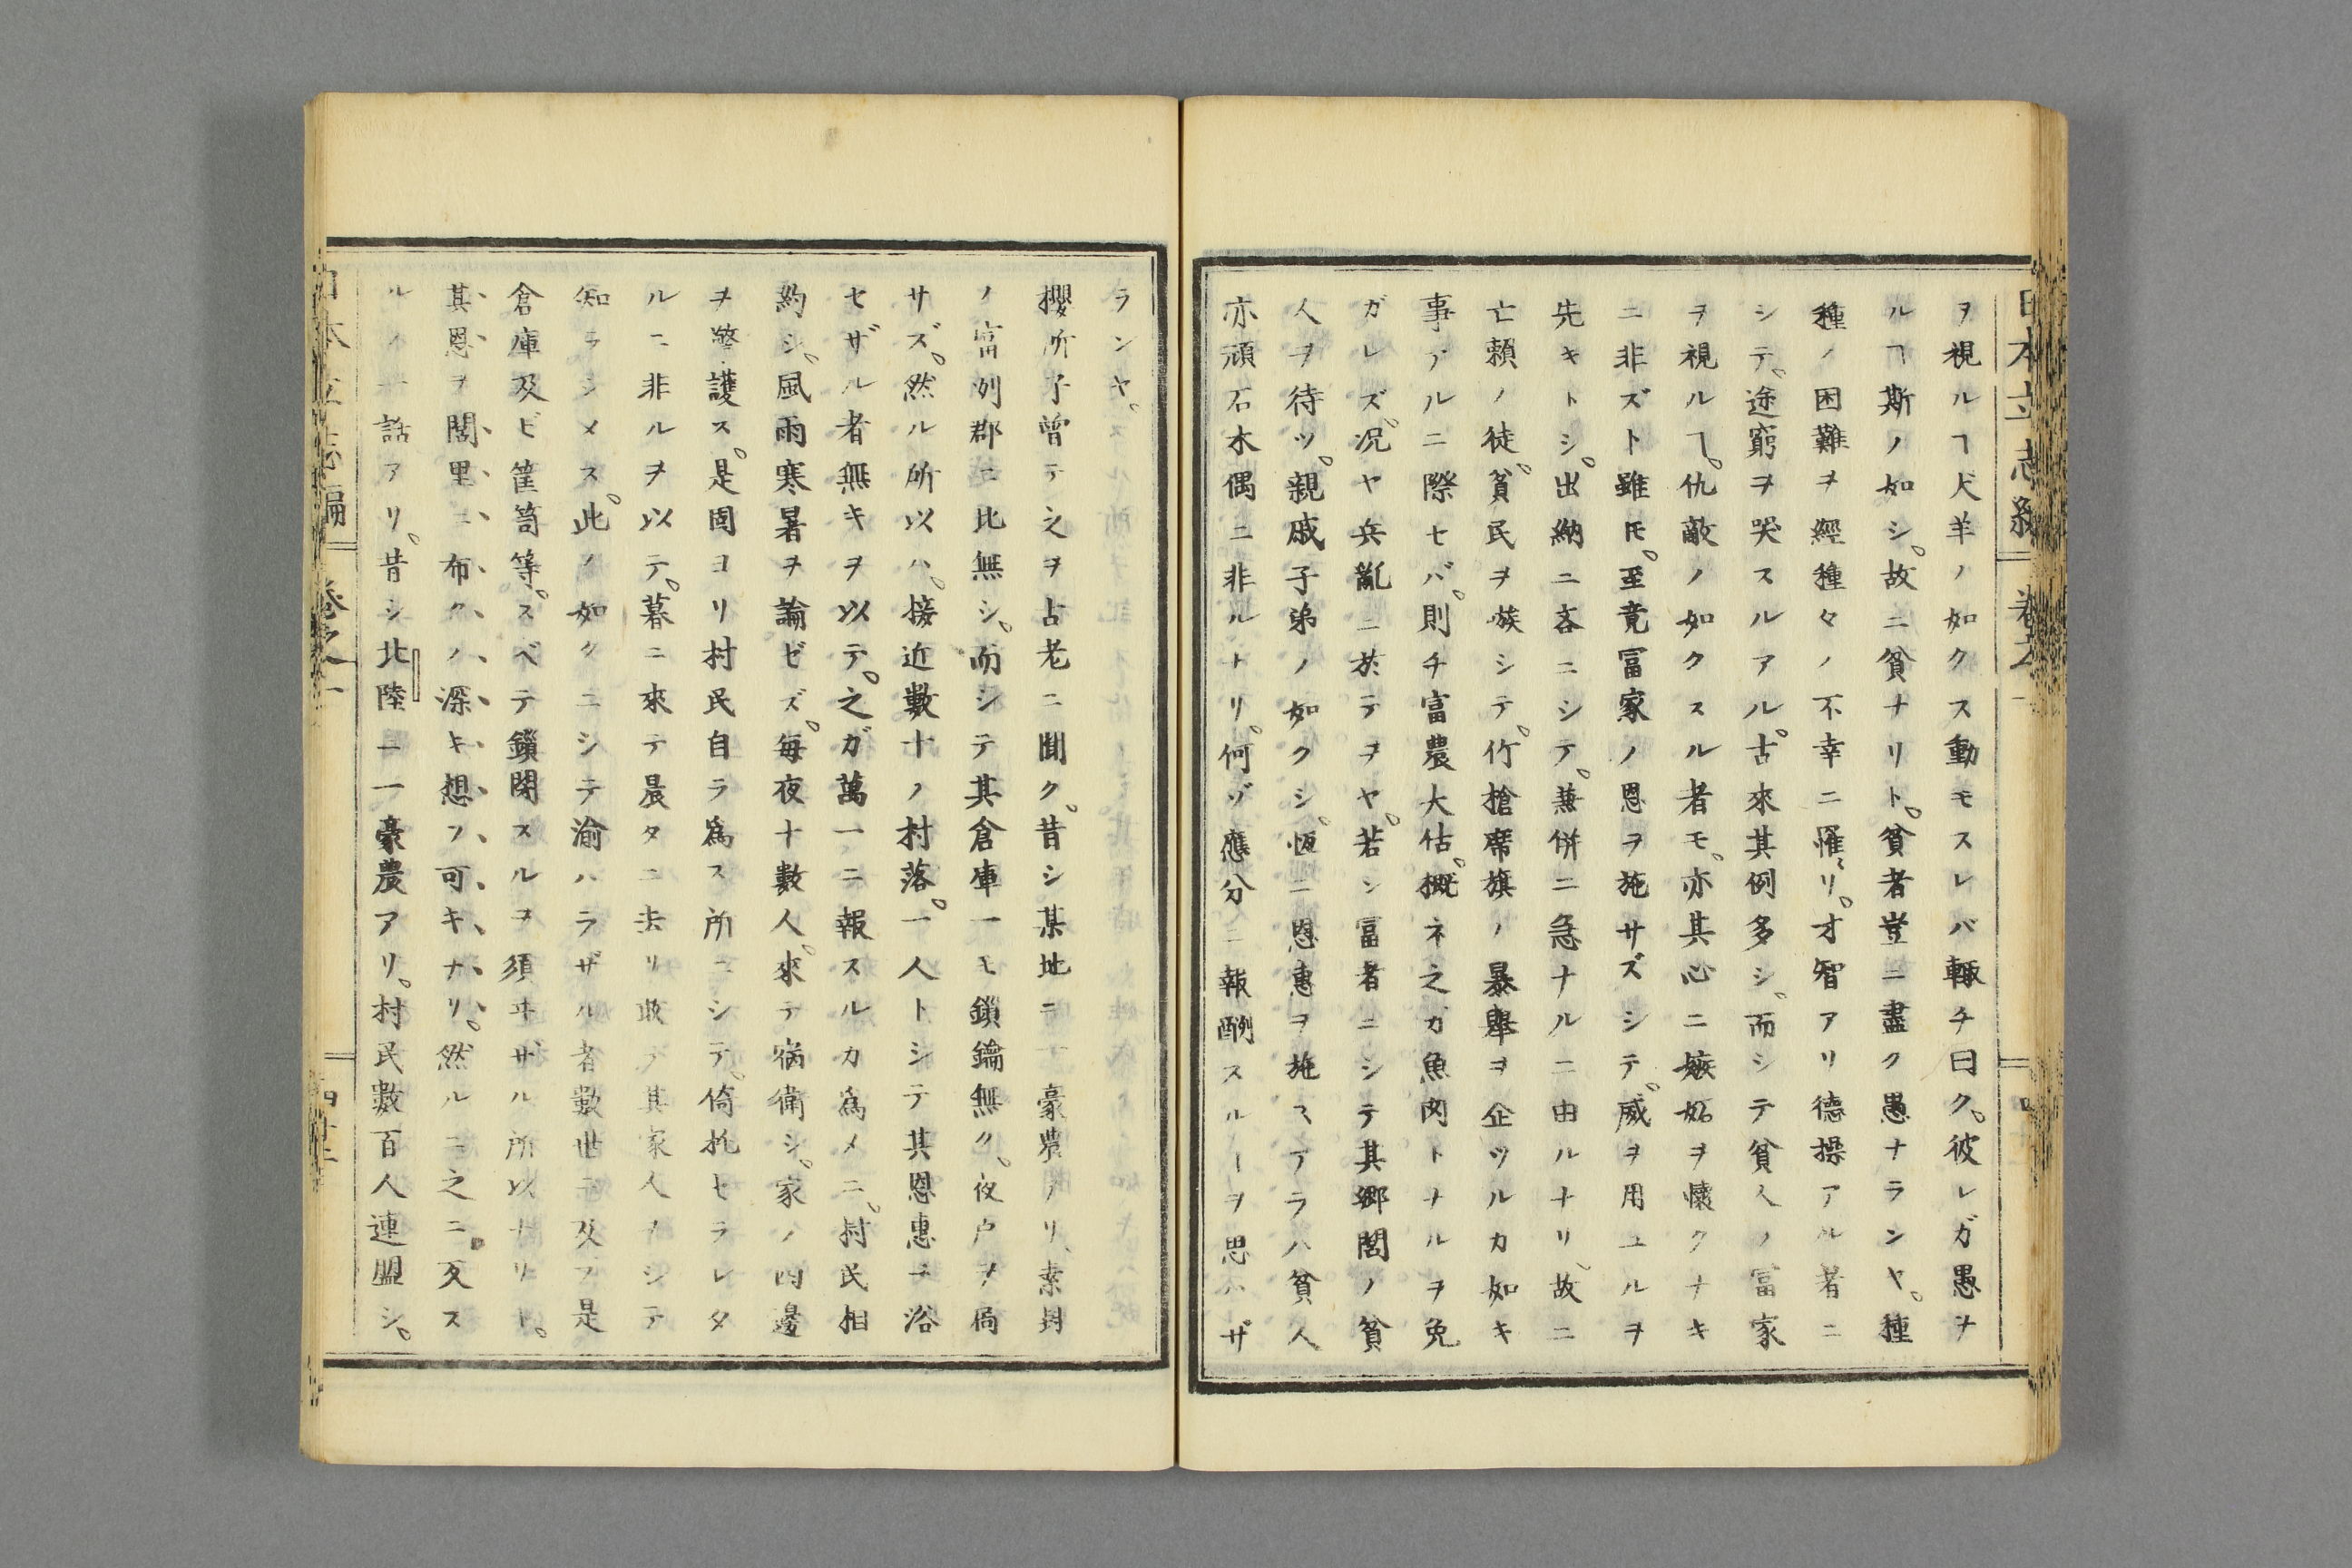 日本立志編 卷之一
ヲ視ルヿ犬羊ノ如クス動モスレバ輙チ曰ク。彼レガ愚ヲ
ルヿ斯ノ如シ。故ニ貧ナリト。貧者豈ニ盡ク愚ナランヤ。種
種ノ困難ヲ經種々ノ不幸ニ罹リ。才智アリ德操アル者ニ
シテ。途窮ヲ哭スルアル。古來其例多シ。而シテ貧人ノ冨家
ヲ視ルヿ。仇敵ノ如クスル者モ。亦其心ニ嫉妬ヲ懷クナキ
ニ非ズト雖モ。至竟冨家ノ恩ヲ施サズシテ。威ヲ用ユルヲ
先キトシ。出納ニ吝ニシテ。兼併ニ急ナルニ由ルナリ。故ニ
亡賴ノ徒。貧民ヲ嗾シテ。竹槍席旗ノ暴擧ヲ企ツルカ如キ
事アルニ際セバ。則チ富農大估。概ネ之ガ魚肉トナルヲ免
ガレズ。況ヤ兵亂ニ於テヲヤ。若シ冨者ニシテ其郷閭ノ貧
人ヲ待ツ。親戚子弟ノ如クシ。恆ニ恩惠ヲ施コアラハ貧人
亦頑石木偶ニ非ルトリ。何ゾ應分ニ報酬スルヿヲ思ハザ
ランヤ。
櫻所子曾テ之ヲ古老ニ聞ク。昔シ某地ニ一豪農アリ、素封
ノ富列郡ニ比無シ。而シテ其倉庫一モ鎖鑰無ク。夜戸ヲ扃
サズ。然ル所以ハ。接近數十ノ村落。一人トシテ其恩惠ニ浴
セザル者無キヲ以テ。之ガ萬一ニ報スルカ爲メニ。村民相
約シ。風雨寒暑ヲ論ゼズ。每夜十數人。來テ宿衛シ。家ノ四邊
ヲ警護ス。是固ヨリ村民自ラ爲ス所ニシテ。倚托セラレタ
ルニ非ルヲ以テ。暮ニ來テ晨タニ去リ敢テ其家人ヲシテ
知ラシメス。此ノ如クニシテ渝ハラザル者數世ニ及フ是
倉庫及ビ筐笥等。スベテ鎖閉スルヲ須ヰザル所以ナリト。
其恩ヲ閭里ニ布クノ深キ想フ可キナリ。然ルニ之ニ反ス
ルノ一話アリ。昔シ北陸ニ一豪農アリ。村民數百人連盟シ。
日本立志編 卷之一